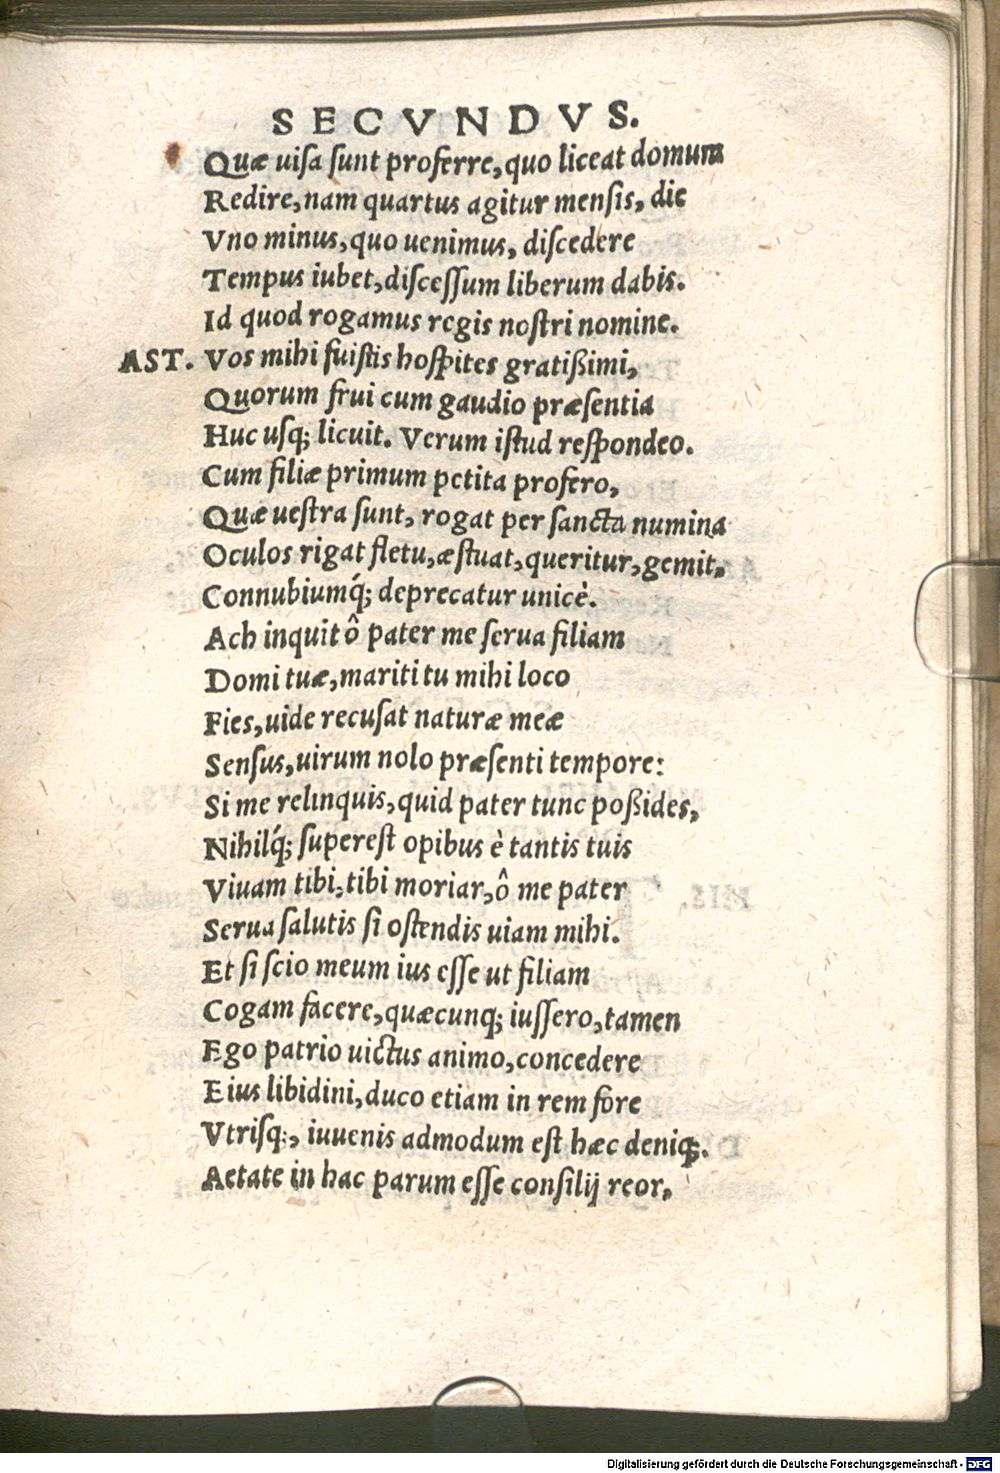 SECVNDVS.
Quæ uiſa ſunt proferre, quo liceat domum
Redire, nam quartus agitur menſis, die
Vno minus, quo uenimus, diſcedere
Tempus iubet, diſceſſum liberum dabis.
Id quod rogamus regis noſtri nomine.
AST. Vos mihi fuiſtis hoſpites gratißimi,
Quorum frui cum gaudio præſentia
Huc uſq; licuit. Verum iſtud reſpondeo.
Cum filiæ primum petita profero,
Quæ ueſtra ſunt, rogat per ſancta numina
Oculos rigat fletu, æſtuat, queritur, gemit,
Connubiumq́; deprecatur unicè.
Ach inquit ô pater me ſerua filiam
Domi tuæ, mariti tu mihi loco
Fies, uide recuſat naturæ meæ
Senſus, uirum nolo præſenti tempore:
Si me relinquis, quid pater tunc poßides,
Nihilq́; ſupereſt opibus è tantis tuis
Viuam tibi, tibi moriar, ô me pater
Serua ſalutis ſi oſtendis uiam mihi.
Et ſi ſcio meum ius eſſe ut filiam
Cogam facere, quæcunq; iuſſero, tamen
Ego patrio uictus animo, concedere
Eius libidini, duco etiam in rem fore
Vtriſq;, iuuenis admodum eſt hæc deniq;.
Aetate in hac parum eſſe conſilij reor,
Digitalisierung gefördert durch die Deutsche Forschungsgemeinschaft - DFG